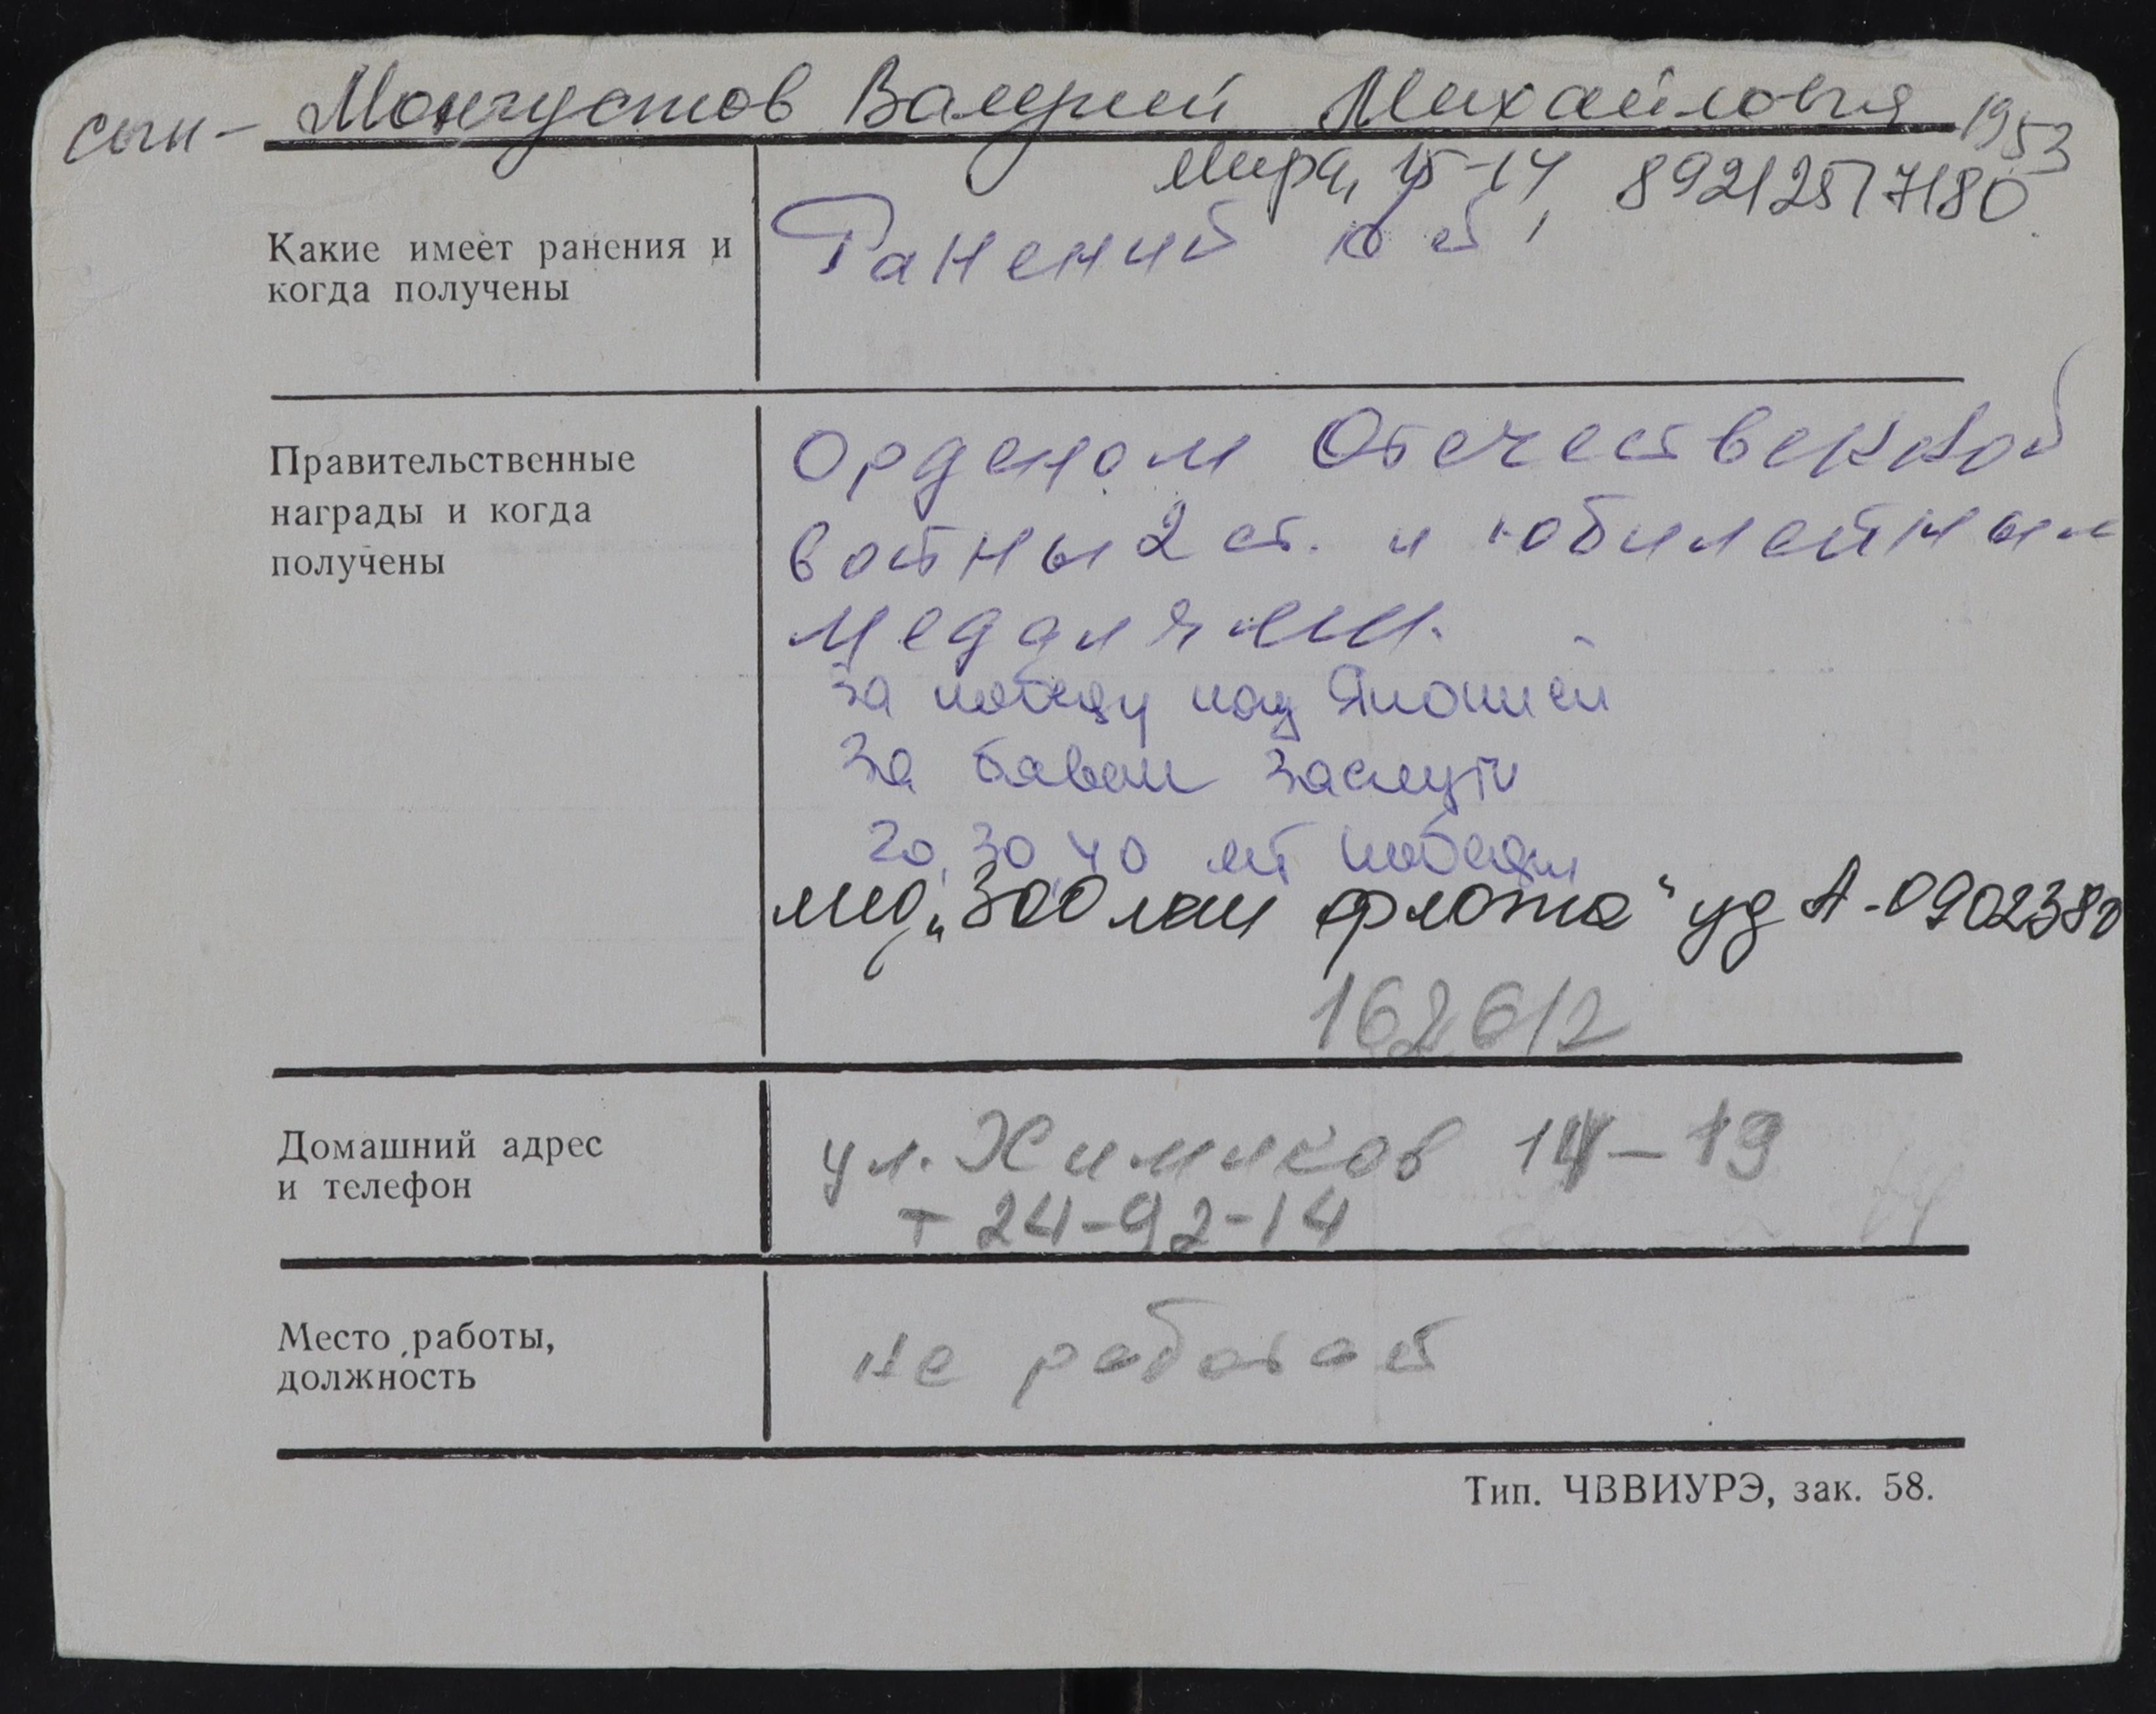 сын – Монгустов Валерий Михайлович 1953
Мира, 15-14 89212517180
Какие имеет ранения и
когда получены
Ранений нет
Правительственные
награды и когда
получены
Орденом Отечественной
войны 2 ст. и юбилейным
медалями.
За победу над Японией
За боевые заслуги
20, 30, 40 лет победы
мед „300 лет флота“ уд А-0902380
162612
Домашний адрес
и телефон
ул. Химиков 14-19
т 24-92-14
Место работы,
должность
не работает
Тип. ЧВВИУРЭ, зак. 58.